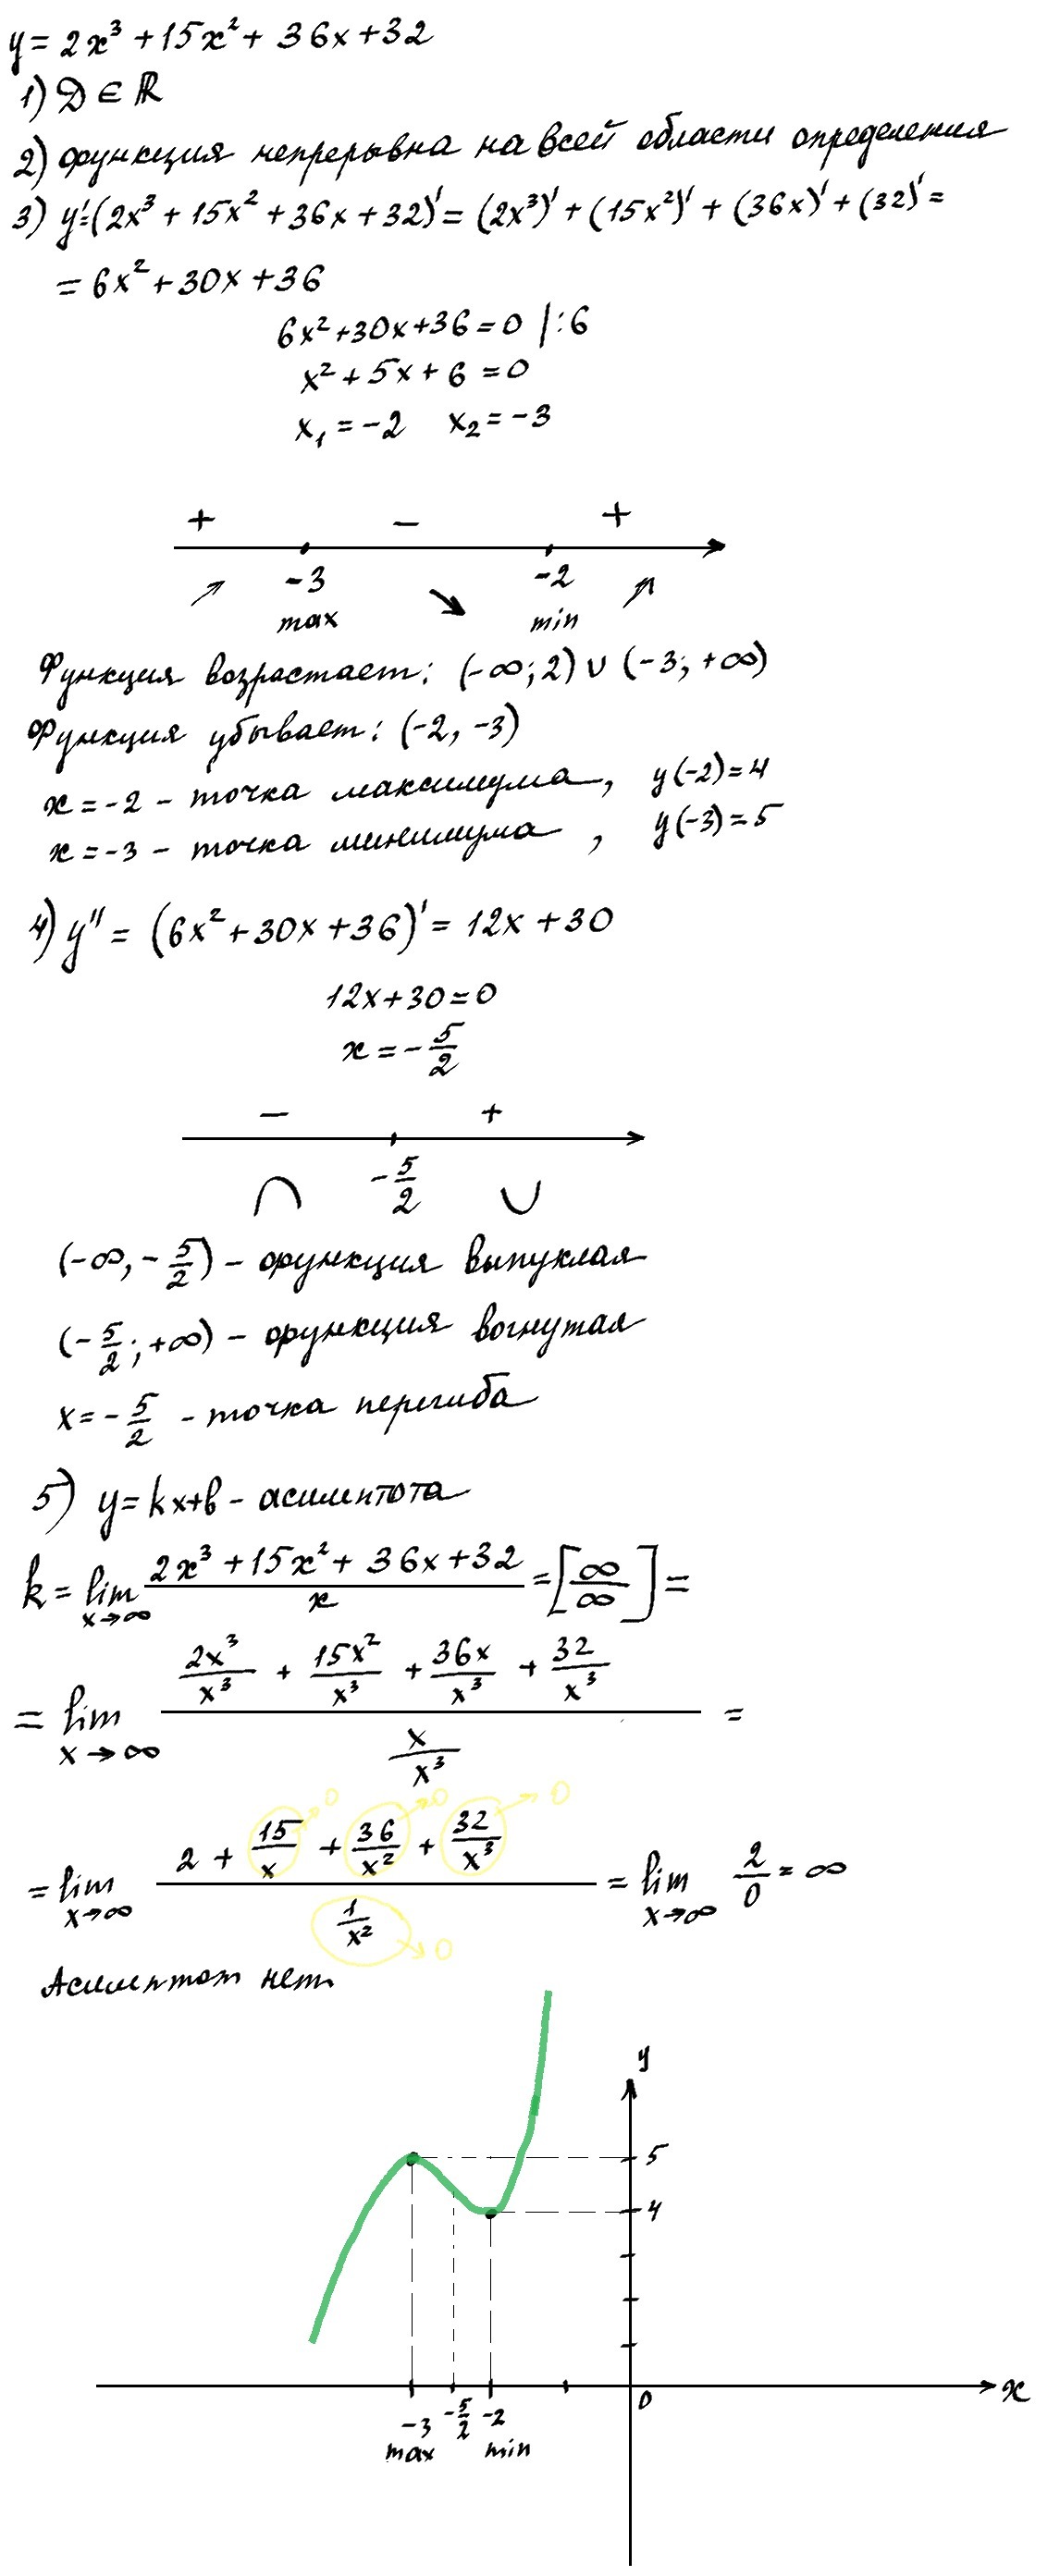 y = 2x³ + 15x² + 36x + 32
1) D ∈ ℝ
2) функция непрерывна на всей области определения
3) y' = (2x³ + 15x² + 36x + 32)' = (2x³)' + (15x²)' + (36x)' + (32)' =
= 6x² + 30x + 36
6x² + 30x + 36 = 0 |:6
x² + 5x + 6 = 0
x₁ = -2 x₂ = -3
+ − +
-3 -2
max min
Функция возрастает: (-∞; 2) ∪ (-3; +∞)
Функция убывает: (-2, -3)
x = -2 - точка максимума, y(-2) = 4
x = -3 - точка минимума, y(-3) = 5
4) y'' = (6x² + 30x + 36)' = 12x + 30
12x + 30 = 0
x = - 5/2
− +
- 5/2
∩ ∪
(-∞, - 5/2) - функция выпуклая
(- 5/2; +∞) - функция вогнутая
x = - 5/2 - точка перегиба
5) y = kx + b - асимптота
k = lim x→∞ (2x³ + 15x² + 36x + 32)/x = [∞/∞] =
= lim x→∞ (2x³/x³ + 15x²/x³ + 36x/x³ + 32/x³)/(x/x³) =
0 0 0
= lim x→∞ (2 + 15/x + 36/x² + 32/x³)/(1/x²) = lim x→∞ 2/0 = ∞
0
Асимптот нет
y
5
4
0 x
-3 - 5/2 -2
max min